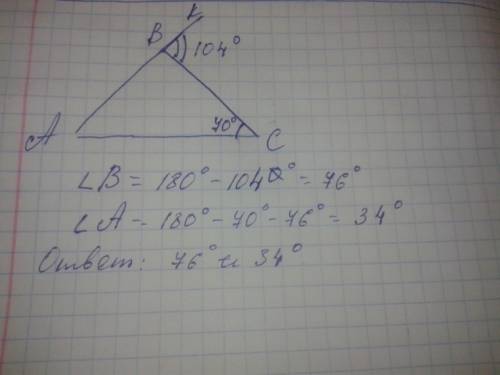 K
B
104°
A
70°
C
∠B = 180° - 104° = 76°
∠A = 180° - 70° - 76° = 34°
Ответ: 76° и 34°